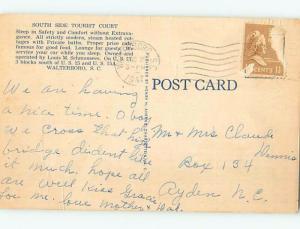 SOUTH SIDE TOURIST COURT
Sleep in Safety and Comfort without Extrava-
gance. All strictly modern, steam heated cot-
tages with Private baths. Proper price cafe,
famous for good food. Lounge for guests. We
service your car while you sleep. Owned and
operated by Louis M. Schmunees. On U. S. 17,
3 blocks south of U. S. 15 and U. S.
WALTERBORO, S. C.
POST CARD
CENTS
We are having
a nice time. O boy
we cross that high
bridge dident like
it much. hope all
are well Kiss Grace
for me. love mother & Dad.
Mr & Mrs Claude
Dennis
Box 134
Ayden N.C.